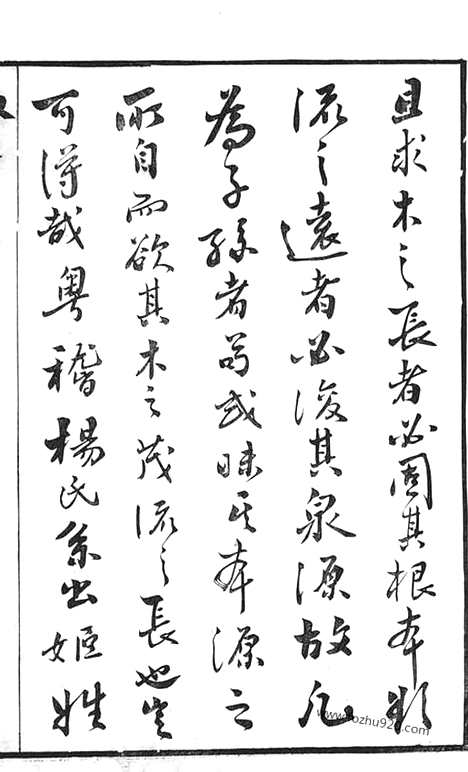 且求木之長者必固其根本欲
流之遠者必浚其泉源故凡
為子孫者苟或昧其本源之
所自而欲其木之茂流之長也豈
可得哉粤稽楊氏系出姬姓
www.zozhu920.com